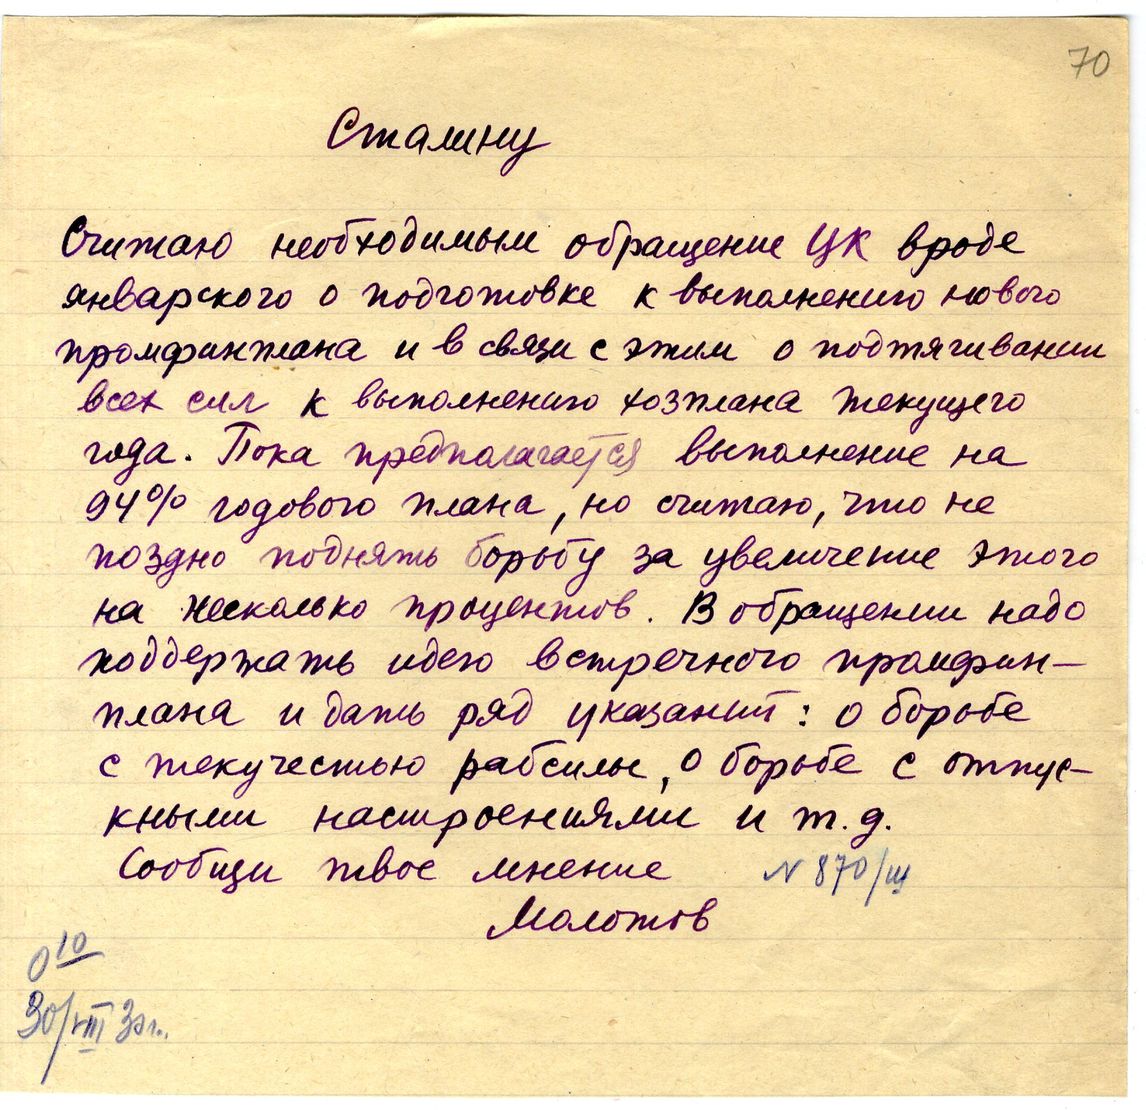 70
Сталину
Считаю необходимым обращение ЦК вроде
январского о подготовке к выполнению нового
промфинплана и в связи с этим о подтягивании
всех сил к выполнению хозплана текущего
года. Пока предполагается выполнение на
94% годового плана, но считаю, что не
поздно поднять борьбу за увеличение этого
на несколько процентов. В обращении надо
поддержать идею встречного промфин-
плана и дать ряд указаний: о борьбе
с текучестью рабсилы, о борьбе с отпус-
кными настроениями и т.д.
Сообщи твое мнение
N 870/ш
Молотов
0 10
30/VIII 30 г.